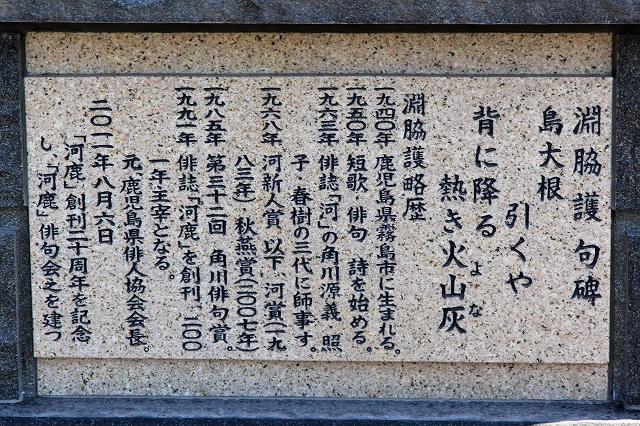 淵脇護句碑
島大根
引くや
背に降る
熱き火山灰
よな
淵脇護略歴
一九四〇年 鹿児島県霧島市に生まれる。
一九五〇年 短歌・俳句 詩を始める。
一九六三年 俳誌「河」の角川源義・照
子・春樹の三代に師事す。
一九六八年 河新人賞 以下、河賞(一九
八三年) 秋燕賞(二〇〇七年)
一九八五年 第三十二回 角川俳句賞。
一九九一年 俳誌「河鹿」を創刊、二〇〇
一年主宰となる。
元、鹿児島県俳人協会会長。
二〇一一年八月六日
「河鹿」創刊二十周年を記念
し、「河鹿」俳句会之を建つ